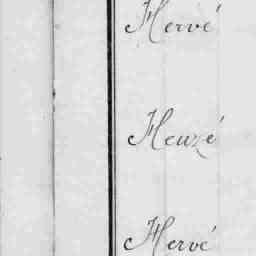 Hervé
Heuzé
Hervé